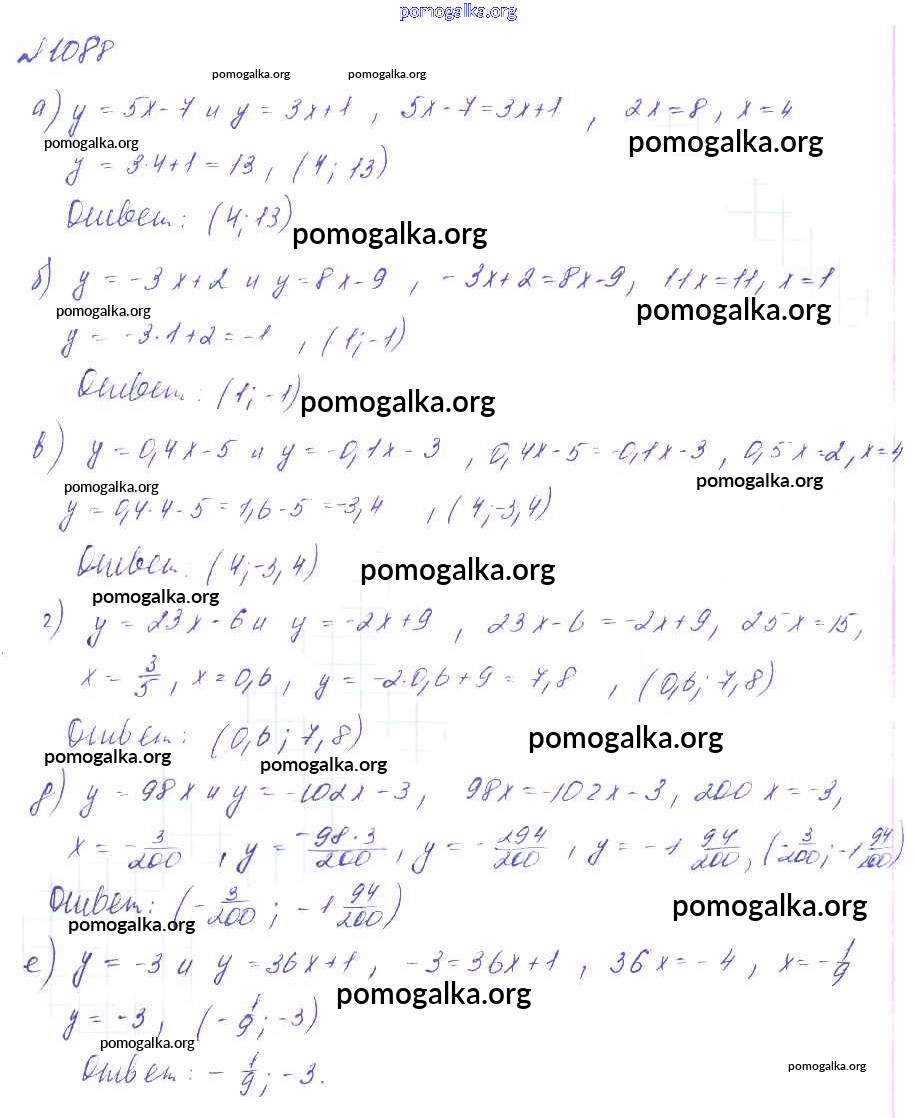 pomogalka.org
№1088
pomogalka.org pomogalka.org
а) y = 5x-7 и y = 3x+1 , 5x-7=3x+1 , 2x=8, x=4
pomogalka.org pomogalka.org
y = 3·4+1=13, (4; 13)
Ответ: (4; 13)
pomogalka.org
б) y = -3x+2 и y=8x-9 , -3x+2=8x-9, 11x=11, x=1
pomogalka.org pomogalka.org
y = -3·1+2=-1 , (1; -1)
Ответ: (1; -1)
pomogalka.org
в) y=0,4x-5 и y=-0,1x-3 , 0,4x-5=-0,1x-3 , 0,5x=2, x=4
pomogalka.org pomogalka.org
y=0,4·4-5=1,6-5=-3,4 , (4;-3,4)
Ответ: (4;-3,4)
pomogalka.org
pomogalka.org
г) y=23x-6 и y=-2x+9 , 23x-6=-2x+9, 25x=15,
x=3/5, x=0,6, y=-2·0,6+9=7,8 , (0,6; 7,8)
Ответ: (0,6; 7,8)
pomogalka.org
pomogalka.org pomogalka.org
д) y=98x и y=-102x-3, 98x=-102x-3, 200x=-3,
x=-3/200 , y=-98·3/200, y=-294/200 , y=-1 94/200, (-3/200; -1 94/200)
Ответ: (-3/200; -1 94/200)
pomogalka.org pomogalka.org
е) y=-3 и y=36x+1, -3=36x+1 , 36x=-4 , x=-1/9
pomogalka.org
y=-3, (-1/9; -3)
pomogalka.org
Ответ: -1/9; -3.
pomogalka.org